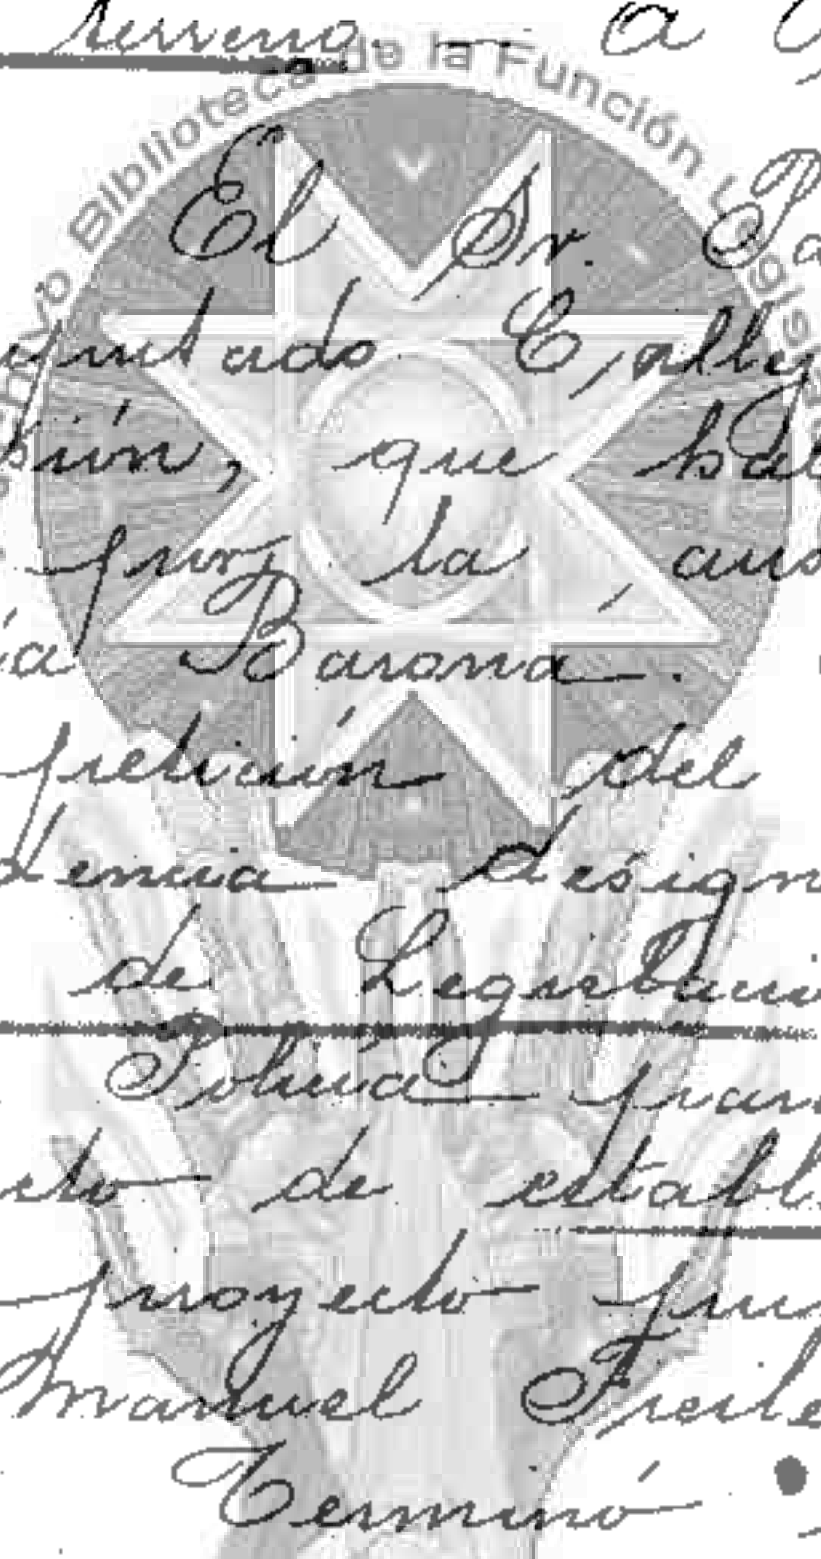 terreno - a
Archivo Biblioteca de la Función Legisla
El Sr. Pa
putado Calle
ción, que hab
por la aus
ía Barona.
petición del
dencia design
de Legislació
Policía para
cto de establ
proyecto pu
Manuel Freile
Terminó